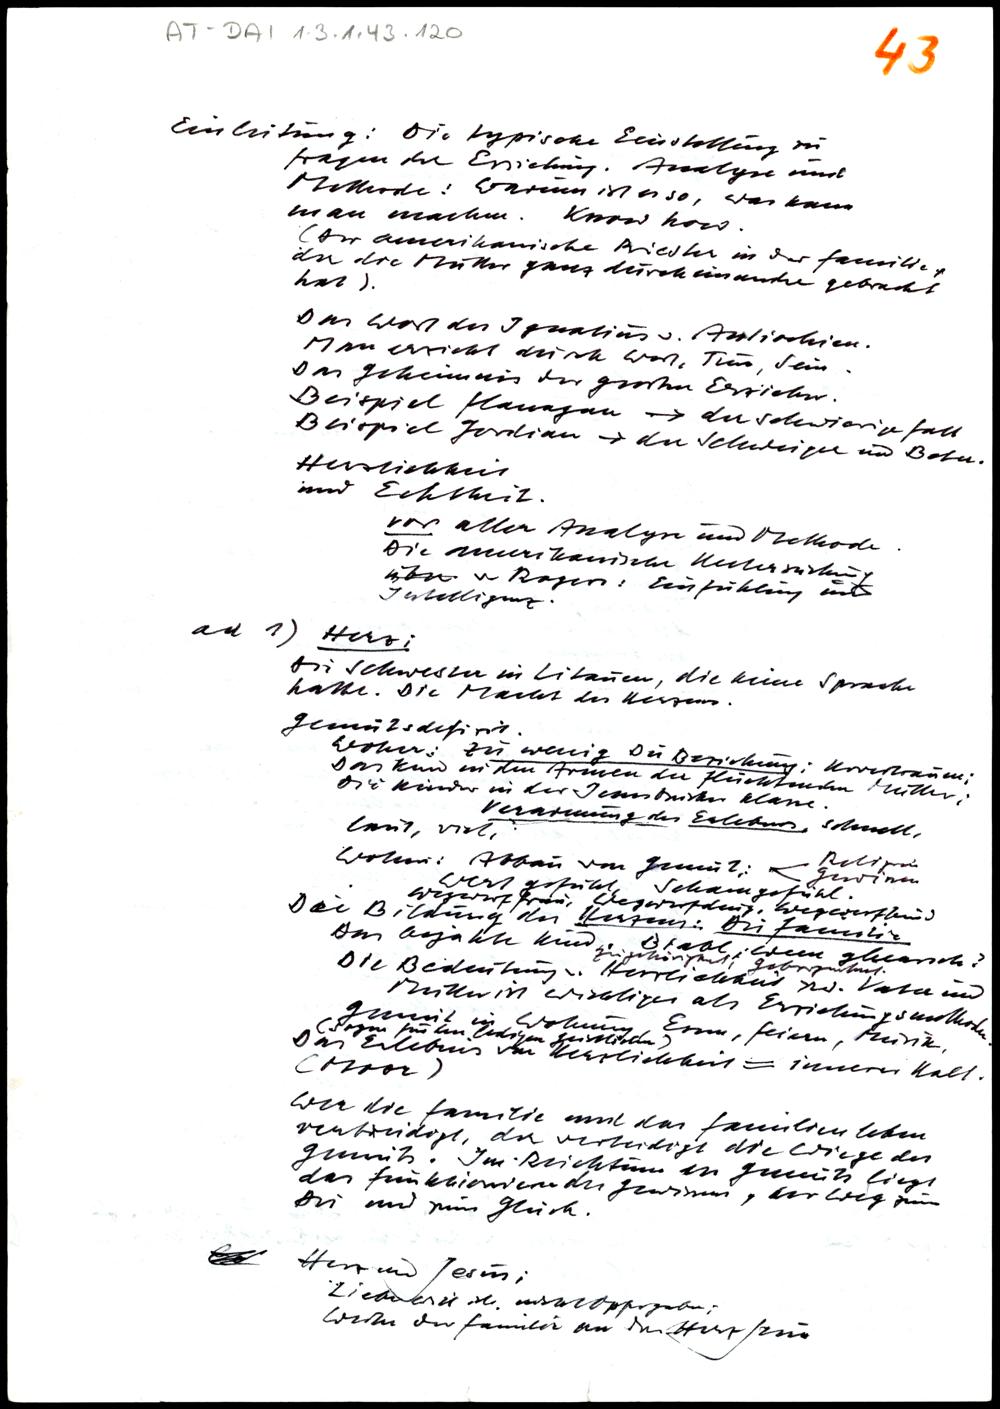 AT-DAI 1.3.1.43.120
43
Einleitung: Die typische Einstellung zu
Fragen der Erziehung. Analyse und
Methode: Warum ist er so, was kann
man machen. Know how.
(Der amerikanische Priester in der Familie,
der die Mutter ganz durcheinander gebracht
hat).
Das Wort des Ignatius v. Antiochien.
Man erzieht durch Wort, Tun, Sein.
Das Geheimnis der grossen Erzieher.
Beispiel Flanagan → der schwierige Fall
Beispiel Jordian → der Schweiger und Beter.
Herzlichkeit
und Echtheit.
vor aller Analyse und Methode.
Die amerikanische Untersuchung
über v Rogers: Einfühlung und
Intelligenz.
ad 1) Herz:
Die Schwester in Litauen, die keine Sprache
hatte. Die Macht des Herzens.
Gemütsdefizit.
Woher: Zu wenig Du Beziehung: Urvertrauen:
Das Kind in den Armen der flüchtenden Mutter;
Die Kinder in der Innsbrucker Klasse.
Verarmung des Erlebens, schnell,
laut, viel,
Wohin: Abbau von Gemüt: Religion
Gewissen
Wertgefühl, Schamgefühl.
Wegwerffrau, Wegwerfding, Wegwerfkind
Die Bildung des Herzens: Die Familie
Das bejahte Kind.
Zugehörigkeit, Geborgenheit.
Die Bedeutung v. Herzlichkeit zw. Vater und
Mutter ist wichtiger als Erziehungsmethoden.
Gemüt in Wohnung, Essen, Feiern, Musik,
(Sogar für den ledigen Geistlichen)
Das Erlebnis von Herzlichkeit = innerer Halt.
(Moor)
Wer die Familie und das Familienleben
verteidigt, der verteidigt die Wiege des
Gemüts. Im Reichtum des Gemüts liegt
das Funktionieren des Gewissens, der Weg zum
Du und zum Glück.
Herz und Jesus:
Liebe will ich, nicht Opfergaben;
Weihe der Familie an das Herz Jesu